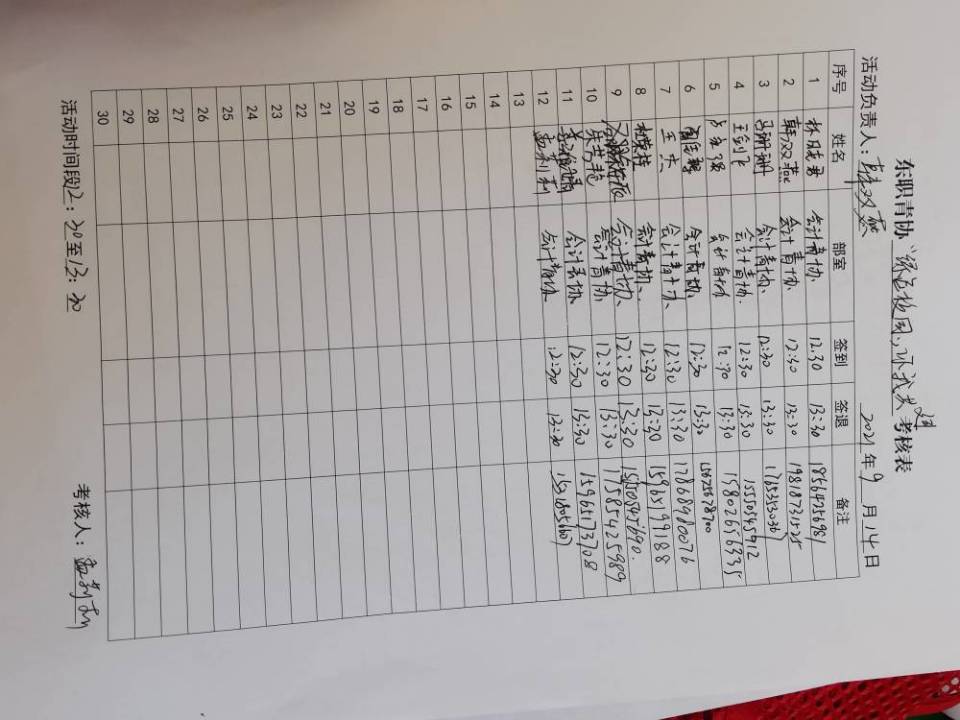 东职青协“绿色校园,环我共建”考核表
活动负责人:韩双燕 2021年9月14日
序号 姓名 部室 签到 签退 备注
1 林晓君 会计青协 12:30 13:30 18564256981
2 韩双燕 会计青协 12:30 13:30 19818731525
3 吕珊珊 会计青协 12:30 13:30
4 王剑飞 会计青协 12:30 13:30 15550545912
5 会计青协 12:30 13:30 15802656335
6 会计青协 12:30 13:30 15675678700
7 王杰 会计青协 12:30 13:30 17868980076
8 会计青协 12:30 13:30 15965199188
9 会计青协 12:30 13:30 15550545690
10 会计青协 12:30 13:30 17585425989
11 会计青协 12:30 13:30 15965173708
12 孟利利 会计青协 12:30 13:30
13
14
15
16
17
18
19
20
21
22
23
24
25
26
27
28
29
30
活动时间段12:30至13:30 考核人:孟利利